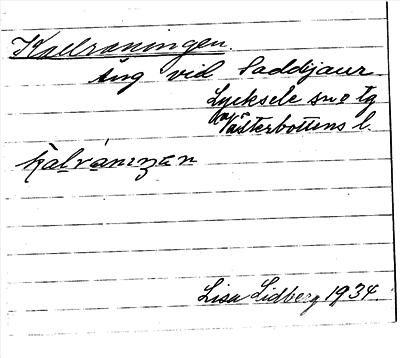 Kallvaningen.
Äng vid Saddijaur
Lycksele sn o tg
Västerbottens l.
Lisa Lidberg 1934.